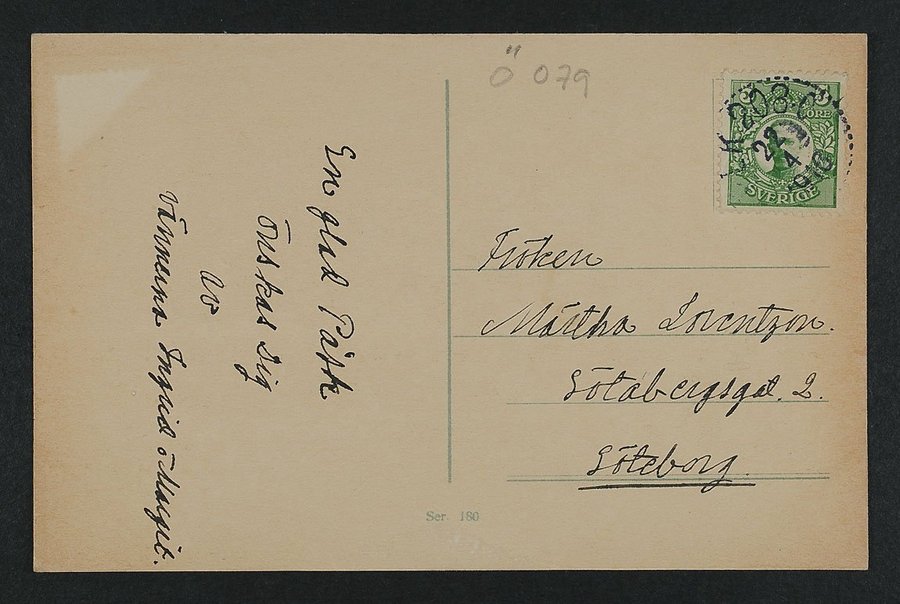 Ö 079
En glad Påsk
önskas dig
av
vännerna Ingrid o Margit.
Fröken
Märtha Lorentzon.
Götabergsgat. 2.
Göteborg.
Ser. 180
ÖRE
SVERIGE
22
4